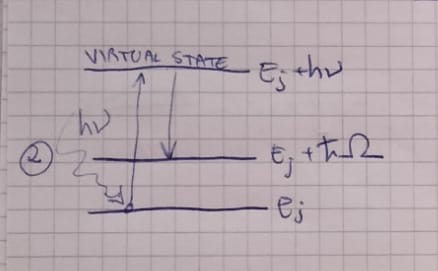 VIRTUAL STATE Ej + hν
hν
② Ej + ħΩ
Ej